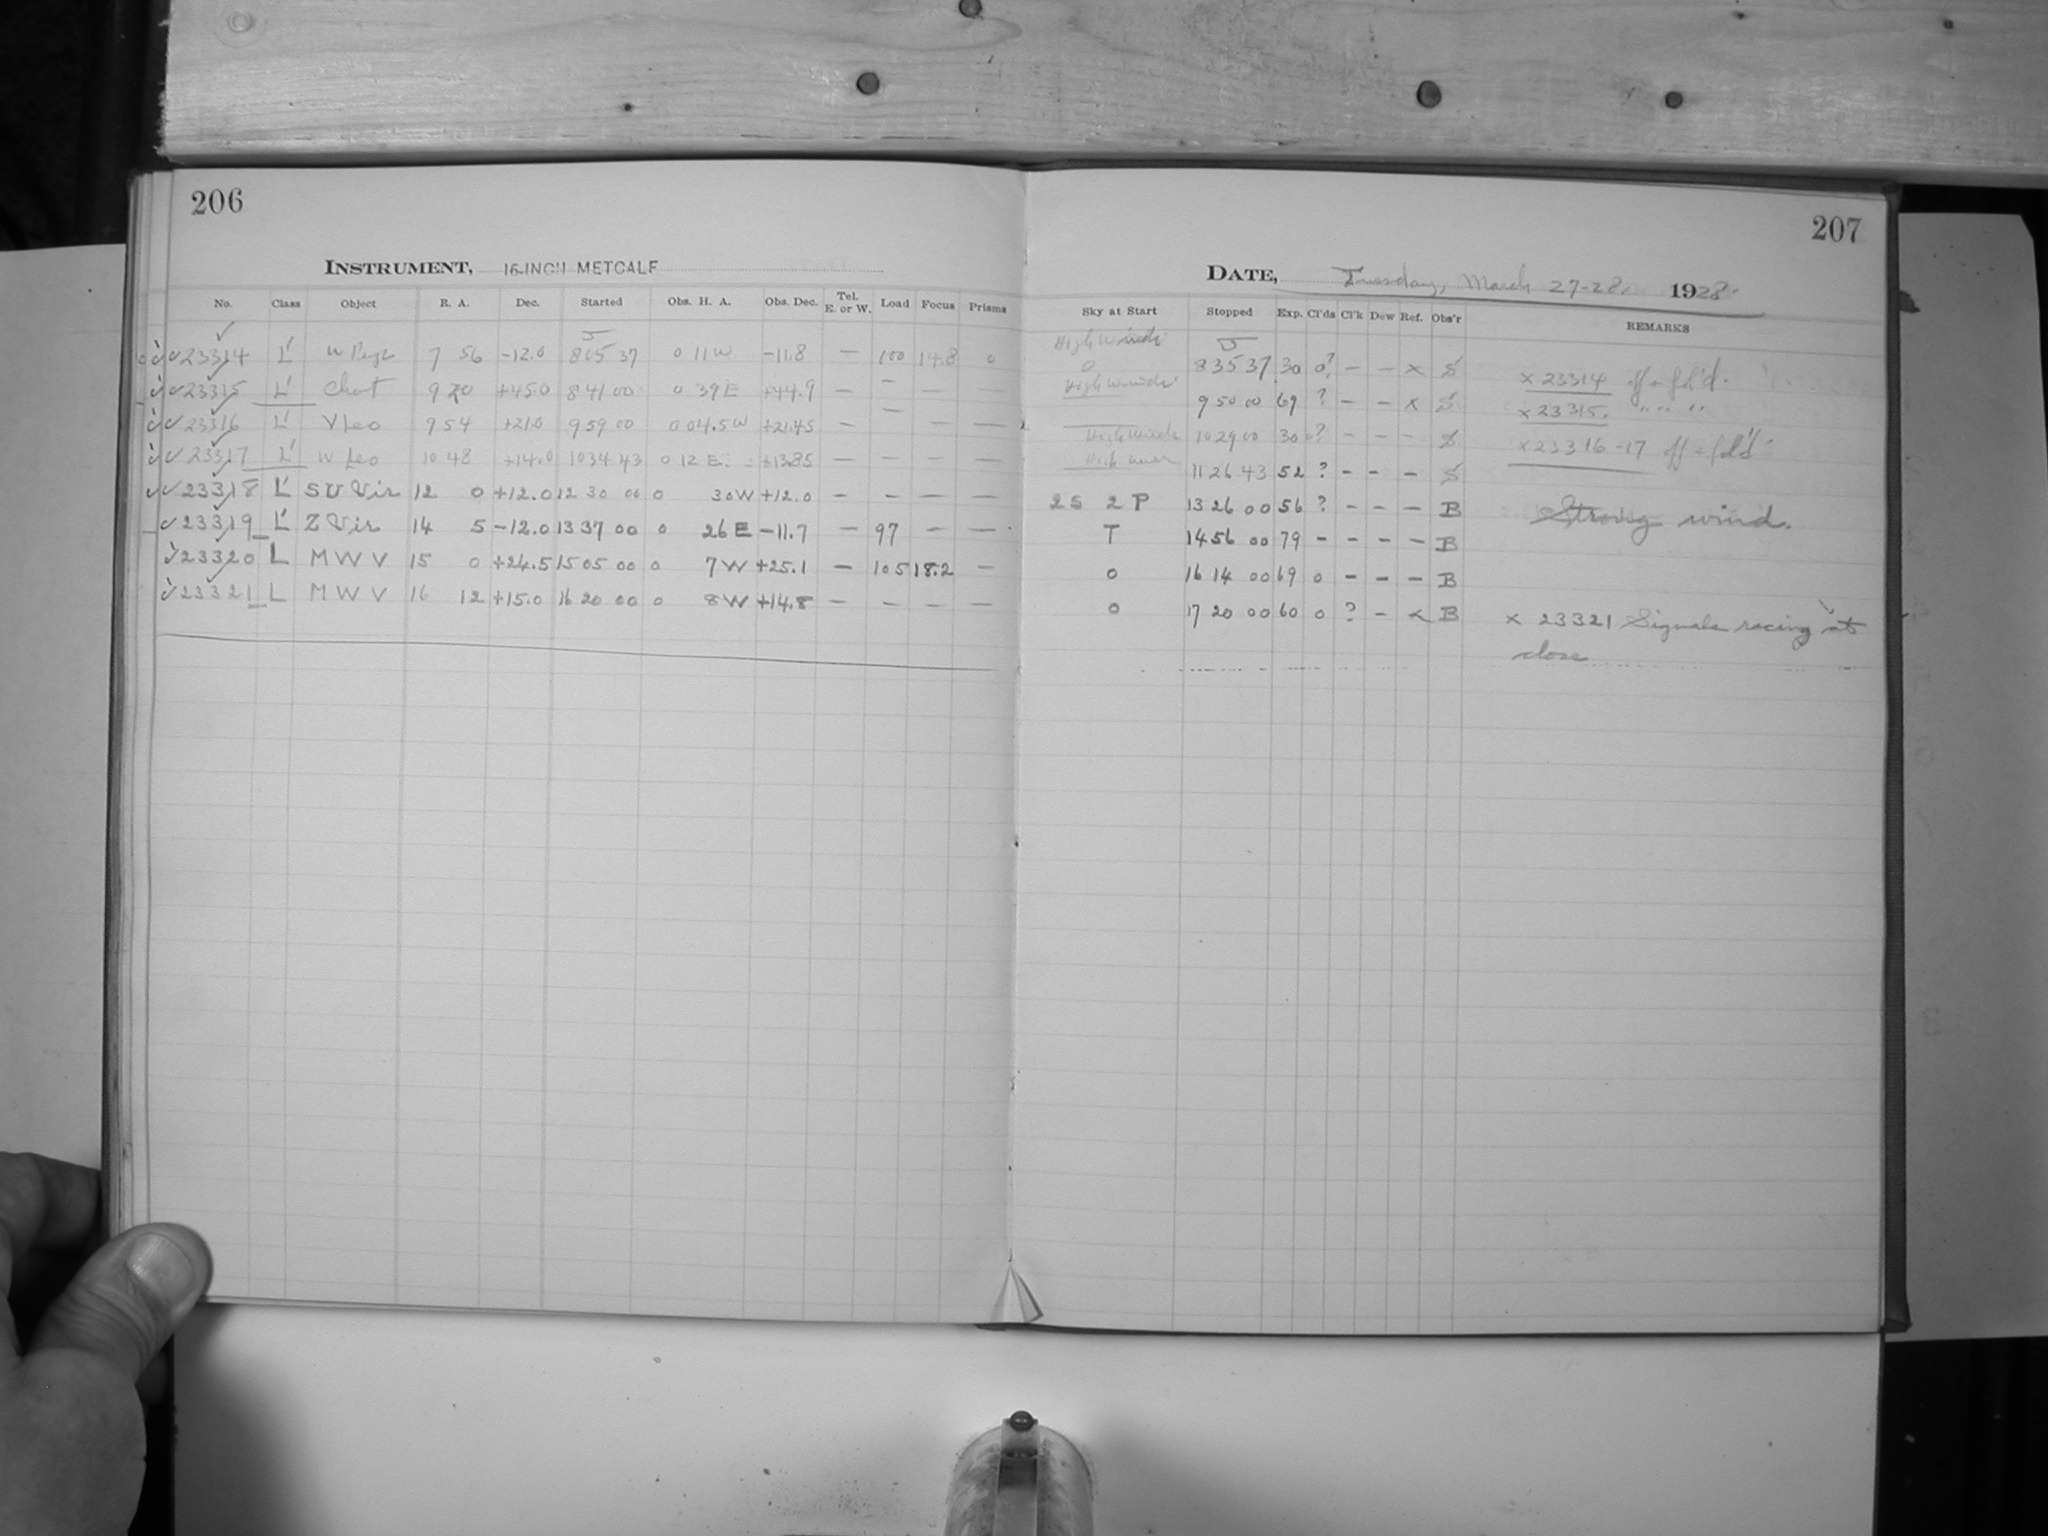 206
INSTRUMENT, 16-INCH METCALF
No. Class Object R. A. Dec. Started Obs. H. A. Obs. Dec. Tel. E. or W. Load Focus Prisms
J
23314 L' 7 56 -12.0 8 05 37 0 11 W -11.8 — 100 14.8 0
23315 L' Chart +45.0 8 41 00 0 39 E +44.9 — — — —
23316 L' V Leo 9 54 +21.0 9 59 00 0 04.5 W +21.45 — — — —
23317 L' W Leo 10 48 +14.0 10 34 43 0 12 E +13.85 — — — —
23318 L' SU Vir 12 0 +12.0 12 30 00 0 30 W +12.0 — — — —
23319 L' Z Vir 14 5 -12.0 13 37 00 0 26 E -11.7 — 97 — —
23320 L M W V 15 0 +24.5 15 05 00 0 7 W +25.1 — 105 18.2 —
23321 L M W V 16 12 +15.0 16 20 00 0 8 W +14.8 — — — —
207
DATE, Tuesday, March 27-28, 1928.
Sky at Start Stopped Exp. Cl'ds Cl'k Dew Ref. Obs'r REMARKS
High winds J
0 8 35 37 30 0? — — x S x 23314 off + fol'd.
High winds 9 50 00 69 ? — — x S x 23315. " " " "
High winds 10 29 00 30 0? — — — S x 23316-17 off + fol'd
High 11 26 43 52 ? — — — S
2S 2P 13 26 00 56 ? — — — B Strong wind.
T 14 56 00 79 — — — — B
0 16 14 00 69 0 — — — B
0 17 20 00 60 0 ? — x B x 23321 Signals racing at
close